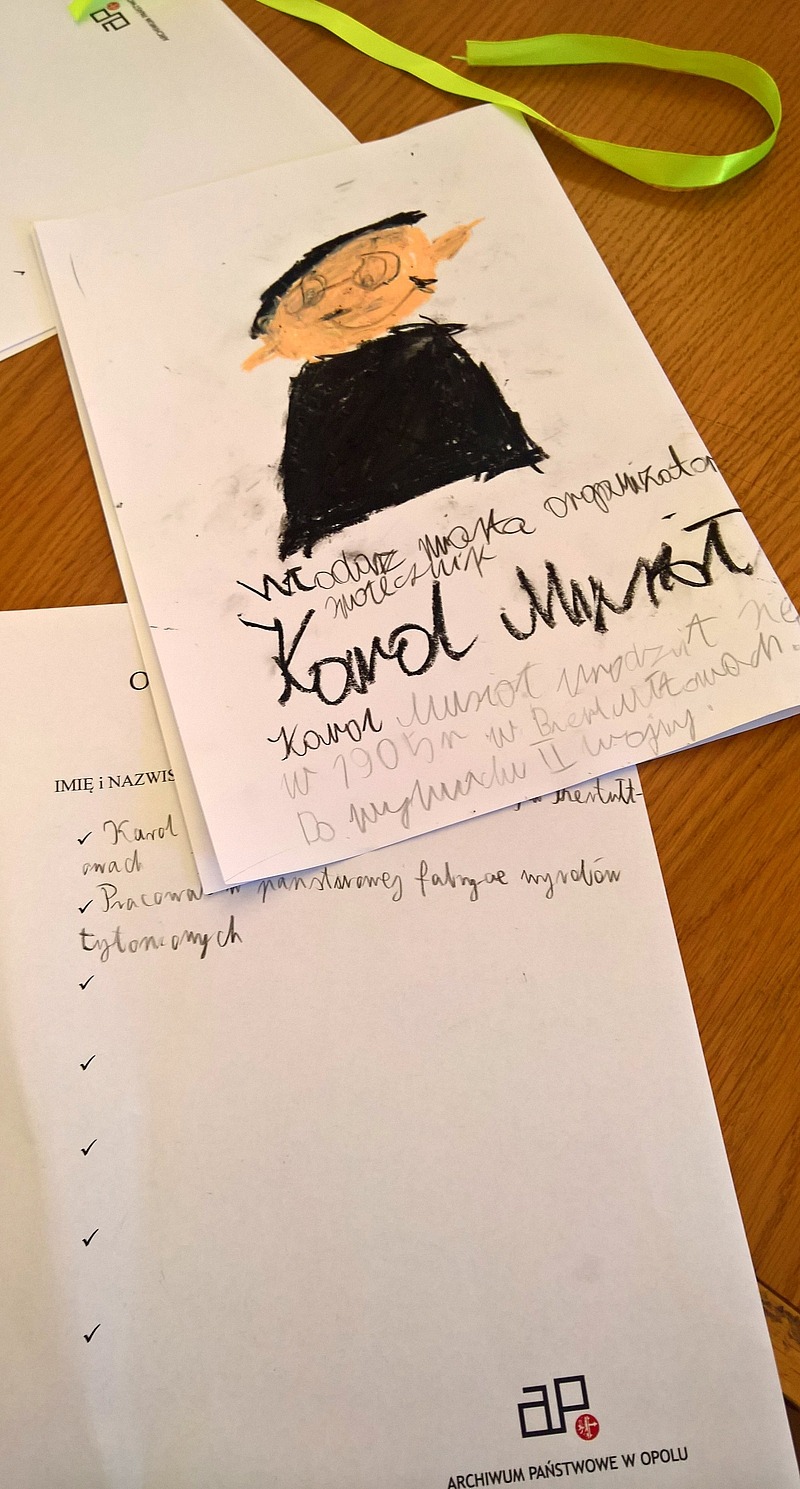 ap
ARCHIWUM PAŃSTWOWE
Włodarz miasta organizator
społecznik
Karol Musioł
Karol Musioł urodził się
w 1905 r w Biertułtowach.
Do wybuchu II wojny.
O
IMIĘ i NAZWIS
✓ Karol Biertułt-
owach
✓ Pracował w państwowej fabryce wyrobów
tytoniowych
✓
✓
✓
✓
✓
ap
ARCHIWUM PAŃSTWOWE W OPOLU